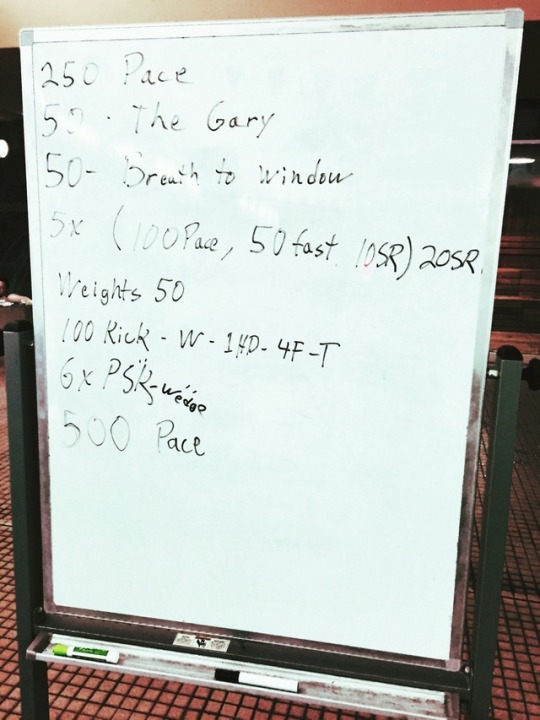 250 Pace
50 - The Gary
50- Breath to window
5x (100 Pace, 50 fast 10SR) 20SR
Weights 50
100 Kick - W - 1HD- 4F-T
6x PSK- wedge
500 Pace